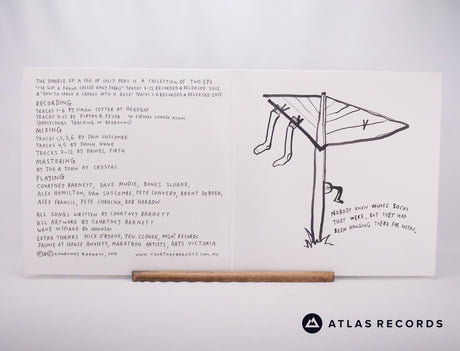 THE DOUBLE EP: A SEA OF SPLIT PEAS IS A COLLECTION OF TWO EPS
"I'VE GOT A FRIEND CALLED EMILY FERRIS" TRACKS 7-12 RECORDED & RELEASED 2012
& "HOW TO CARVE A CARROT INTO A ROSE" TRACKS 1-6 RECORDED & RELEASED 2013
RECORDING
TRACKS 1-6 BY SIMON COTTER AT HEADGAP
TRACKS 7-12 BY FIRTHY & FEVER IN FIRTHYS LOUNGE ROOM
(ADDITIONAL TRACKING IN BEDROOMS)
MIXING
TRACKS 1,2,3,6 BY DAN LUSCOMBE
TRACKS 4,5 BY DANN HUME
TRACKS 7-12 BY DANIEL FIRTH
MASTERING
BY JOE & JOHN AT CRYSTAL
PLAYING
COURTNEY BARNETT, DAVE MUDIE, BONES SLOANE,
ALEX HAMILTON, DAN LUSCOMBE, PETE CONVERY, BRENT DEBOER,
ALEX FRANCIS, PETE LUBULWA, ROB HARROW
ALL SONGS WRITTEN BY COURTNEY BARNETT
ALL ARTWORK BY COURTNEY BARNETT
WAVE INSPIRED BY HOKUSAI
EXTRA THANKS NICK O'BYRNE, JEN CLOHER, MILK! RECORDS
JAIMIE AT HOUSE ANXIETY, MARATHON ARTISTS, ARTS VICTORIA
℗&© COURTNEY BARNETT, 2013 WWW.COURTNEYBARNETT.COM.AU
NOBODY KNEW WHOSE SOCKS
THEY WERE, BUT THEY HAD
BEEN HANGING THERE FOR WEEKS.
ATLAS RECORDS